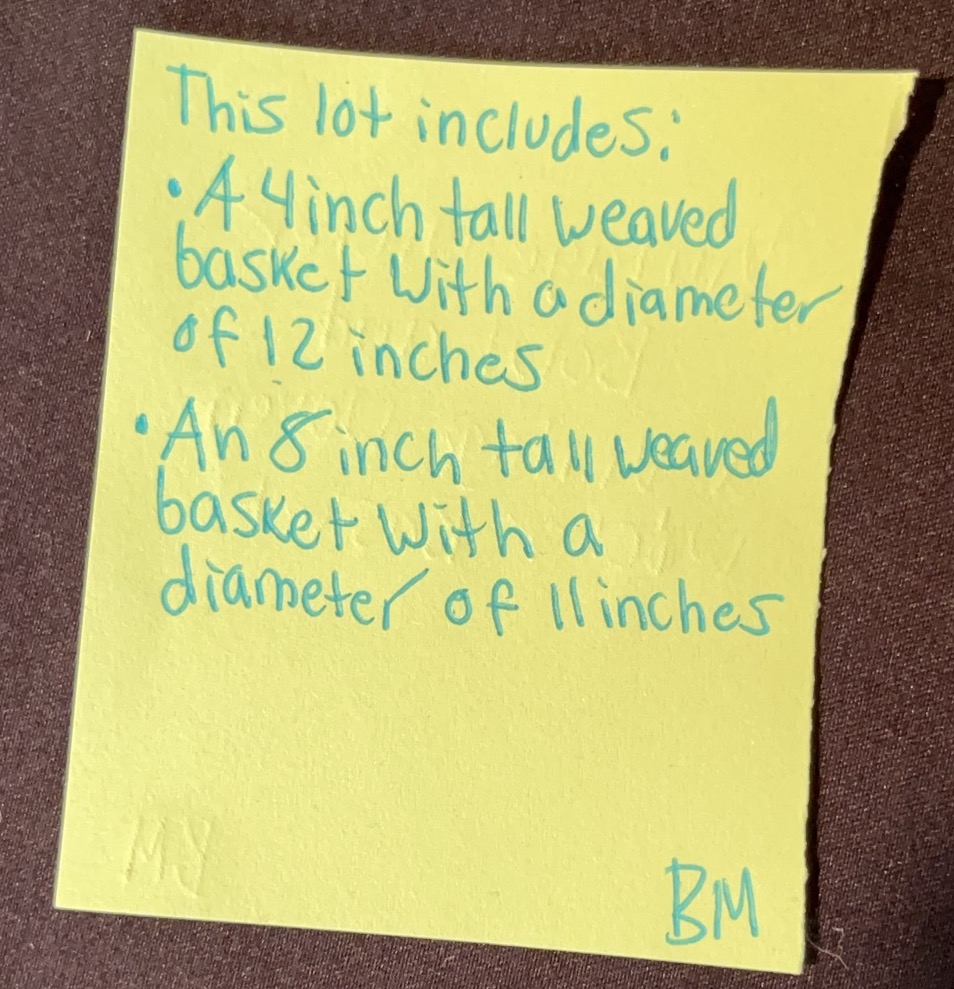 This lot includes:
• A 4 inch tall weaved
basket with a diameter
of 12 inches
• An 8 inch tall weaved
basket with a
diameter of 11 inches
BM